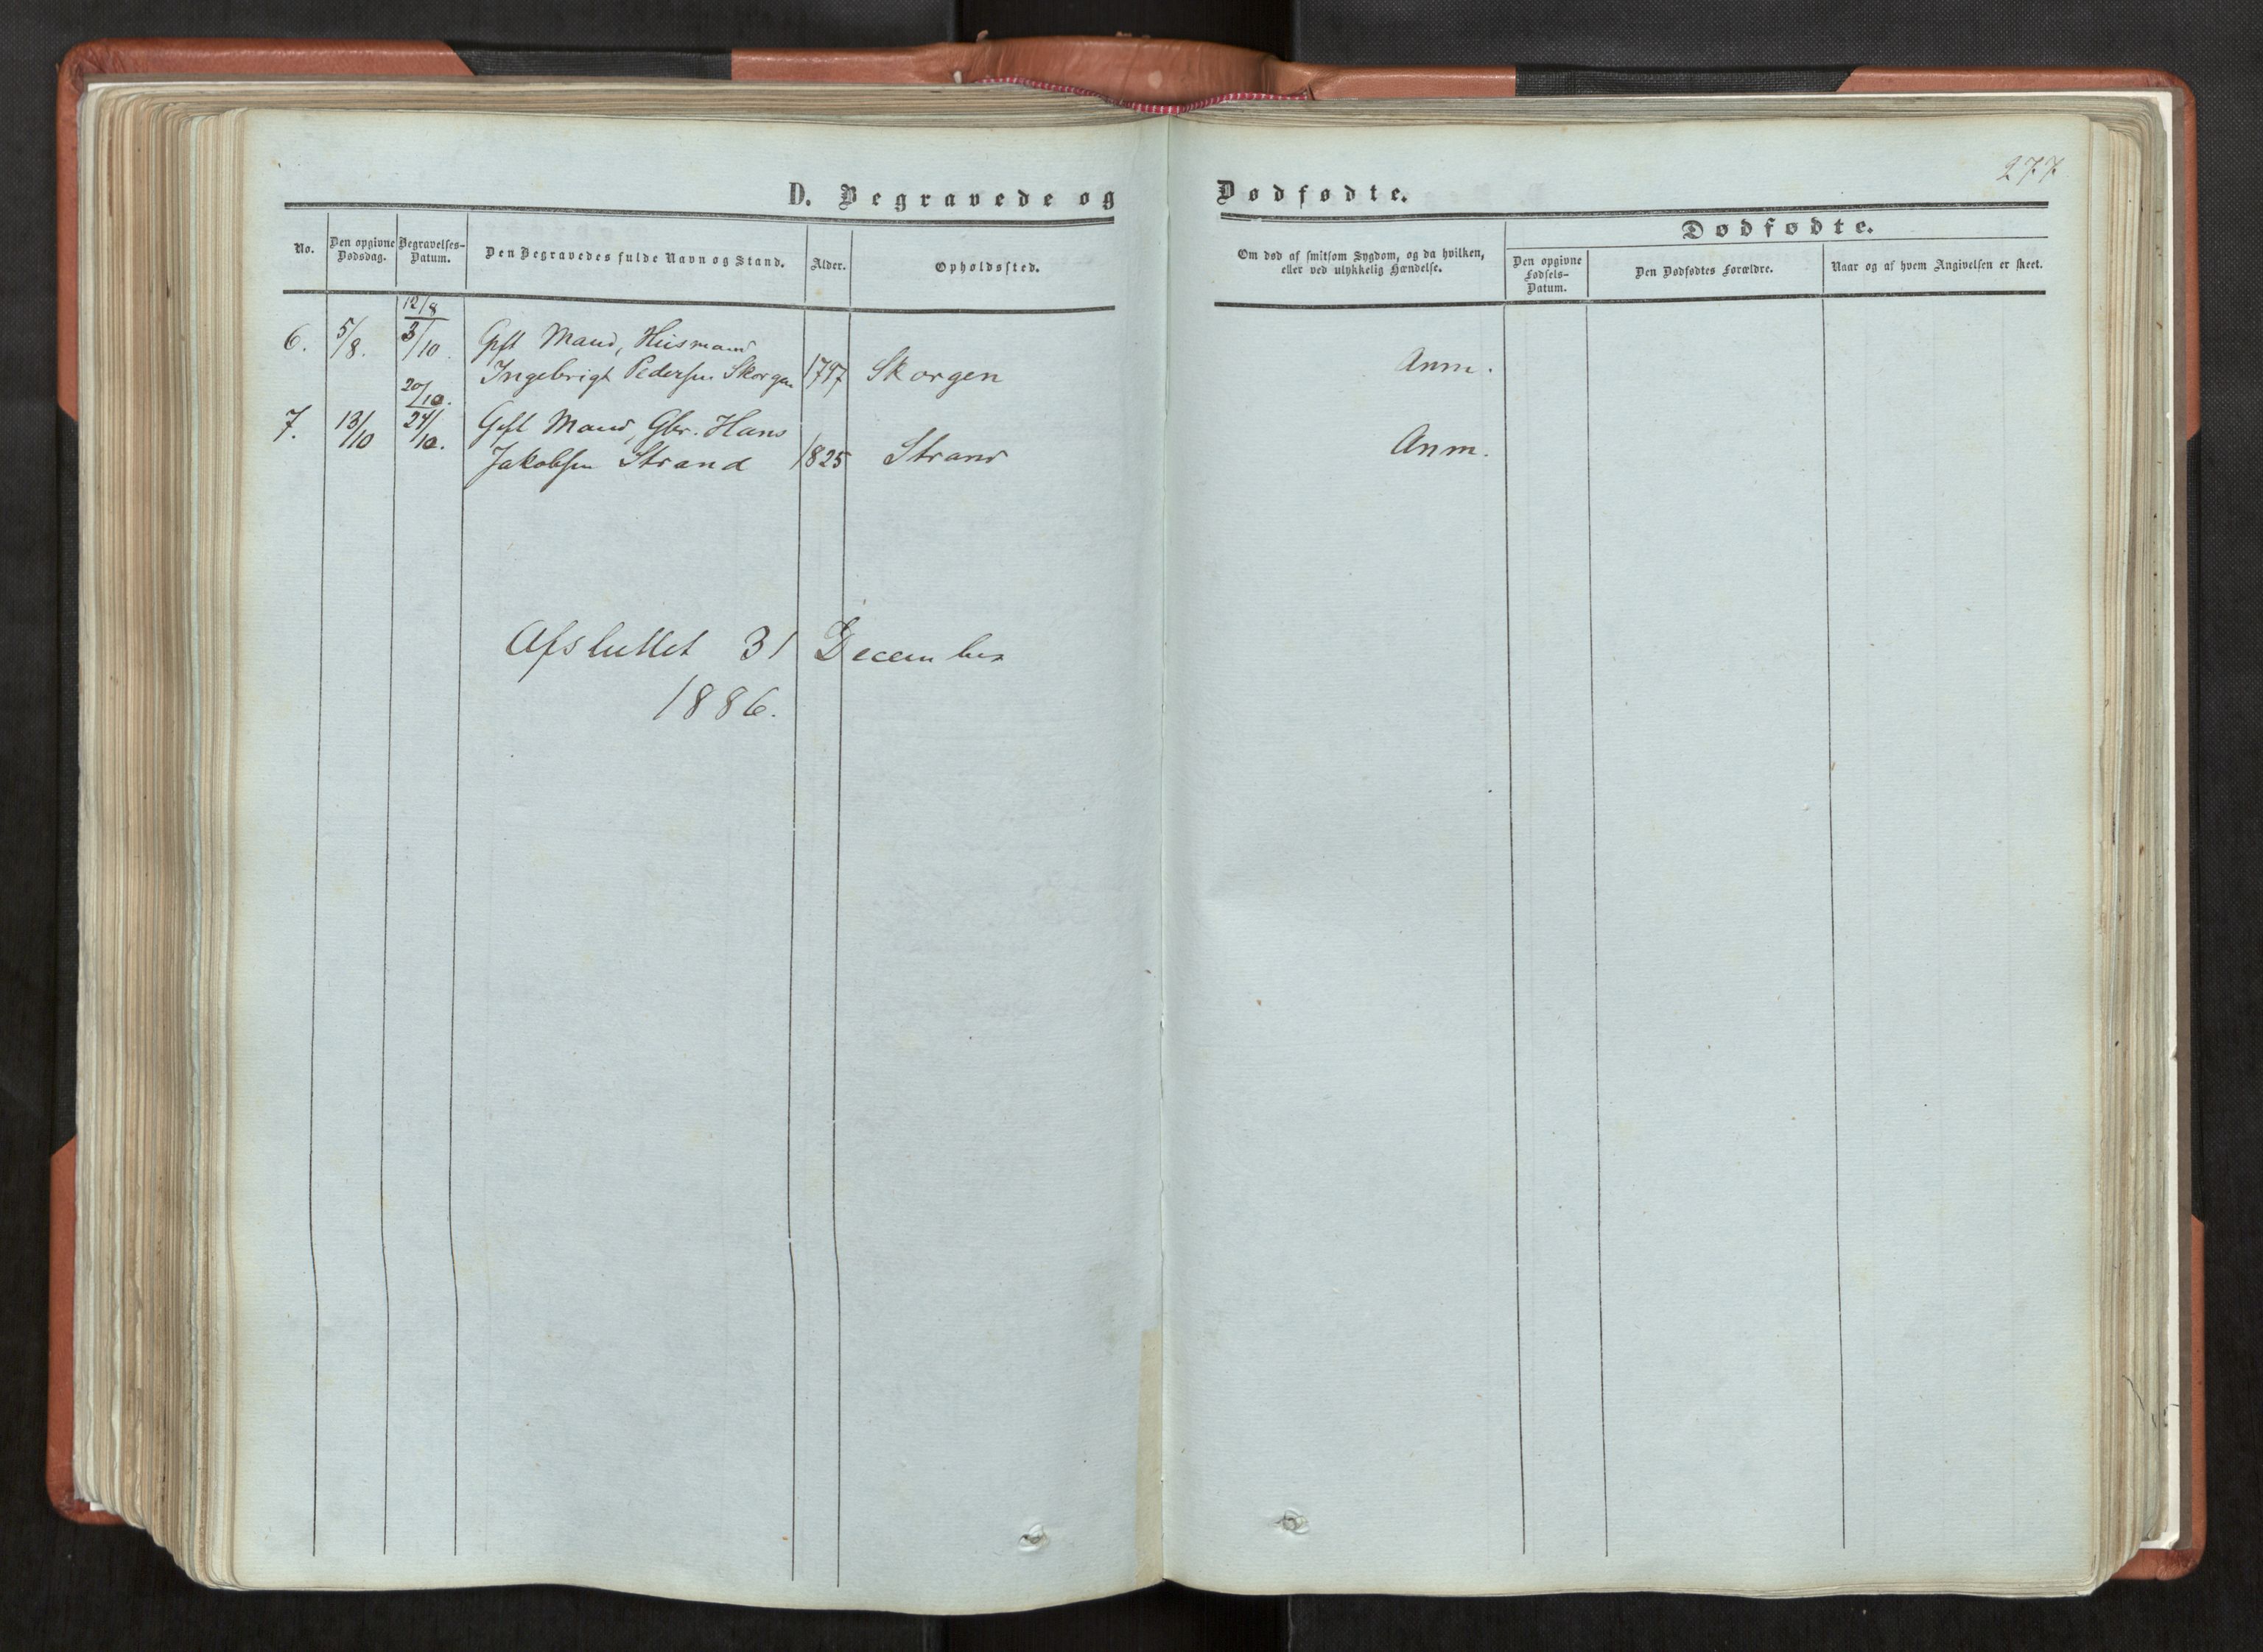 277
D. Begravede og Dødfødte.
No.
Den opgivne Dødsdag.
Begravelses-Datum.
Den Begravedes fulde Navn og Stand.
Alder.
Opholdssted.
Om død af smitsom Sygdom, og da hvilken,
eller ved ulykkelig Hændelse.
Dødfødte.
Den opgivne
Fødsels-
Datum.
Den Dødfødtes Forældre.
Naar og af hvem Angivelsen er skeet.
12/8
6. 5/8. 3/10. Gift Mand, Husmand
Ingebrigt Pedersen Skorgen Skorgen Anm.
20/10.
7. 13/10 24/10. Gift Mand, Gbr. Hans
Jakobsen Strand 1825 Strand Anm.
Afsluttet 31 December
1886.